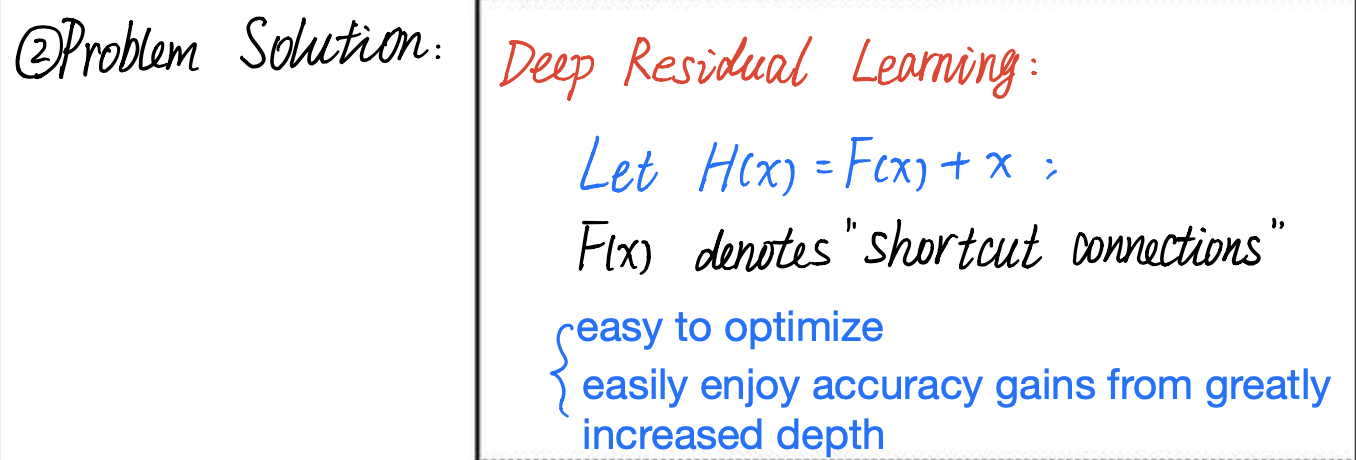 ②Problem Solution:
Deep Residual Learning:
Let H(x) = F(x) + x ;
F(x) denotes "shortcut connections"
easy to optimize
easily enjoy accuracy gains from greatly
increased depth